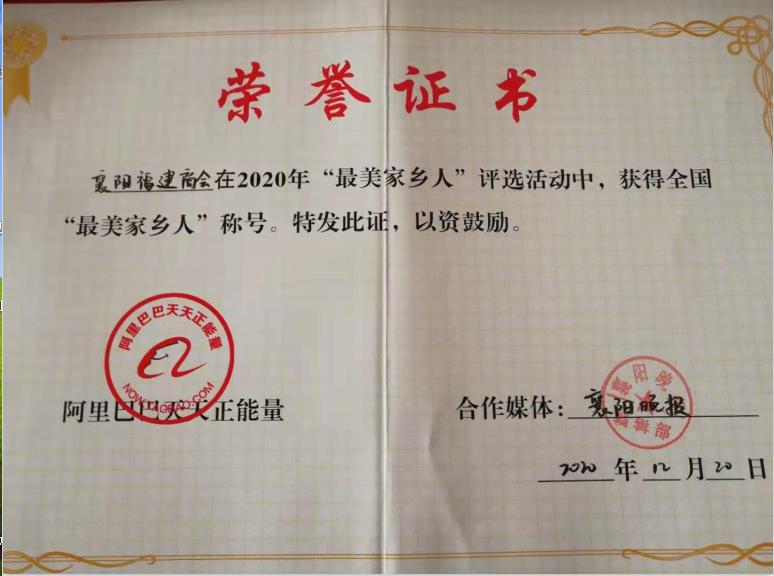 荣誉证书
襄阳福建商会在2020年“最美家乡人”评选活动中，获得全国
“最美家乡人”称号。特发此证，以资鼓励。
阿里巴巴天天正能量
NOW.TAOBAO.COM
阿里巴巴天天正能量
合作媒体：襄阳晚报
襄阳晚
2020年12月20日